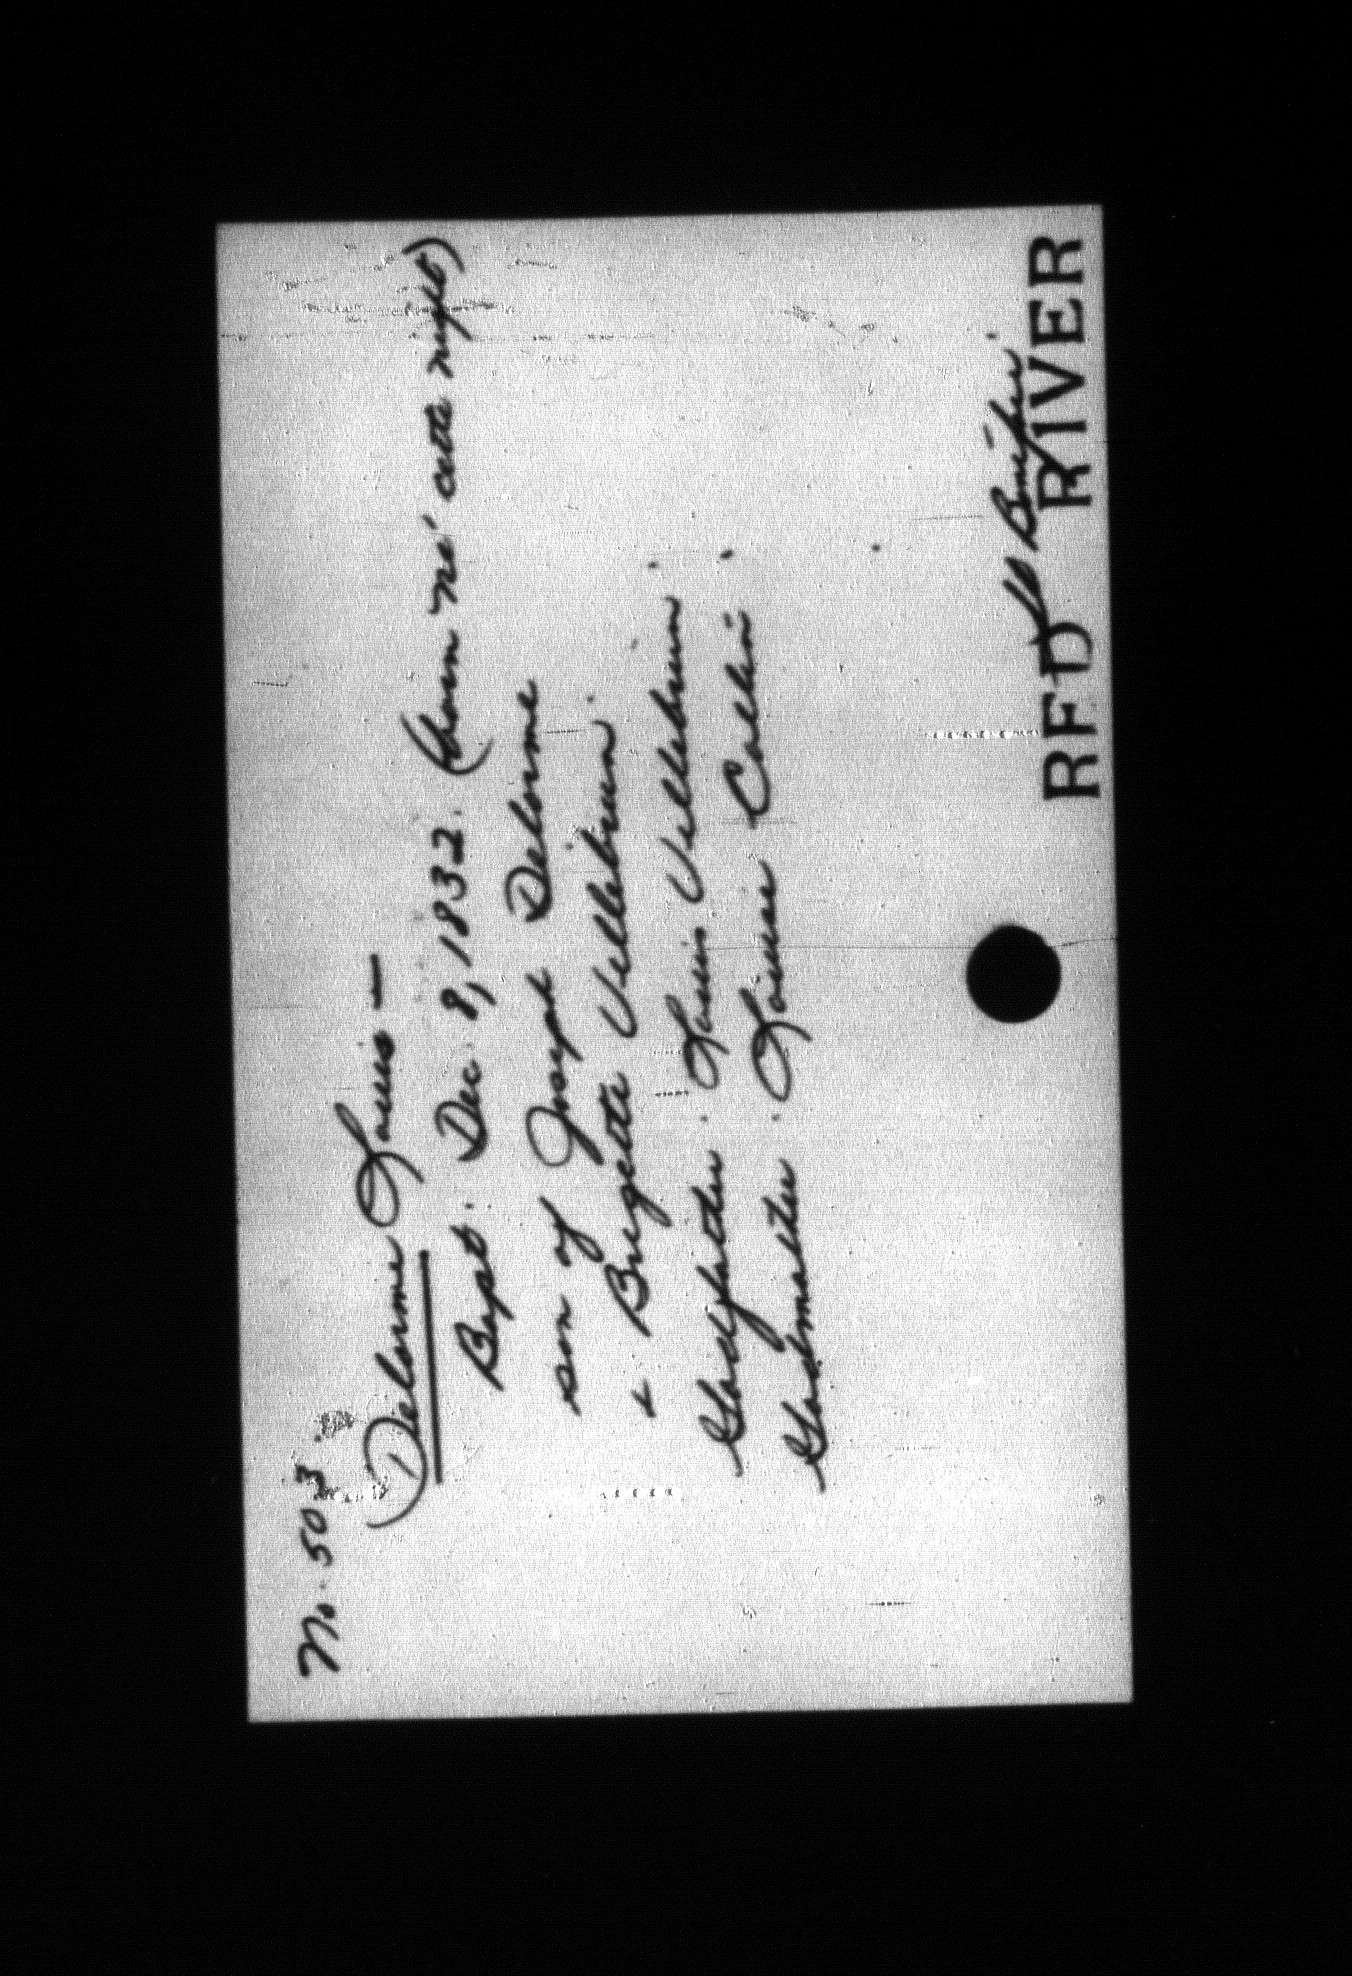 No. 503
Delorme Louis —
Bapt. Dec. 8, 1832. (born né cette night)
son of Joseph Delorme
& Brigette Villebrun.
Godfather. Louis Villebrun.
Godmother. Louise Collin.
RED RIVER